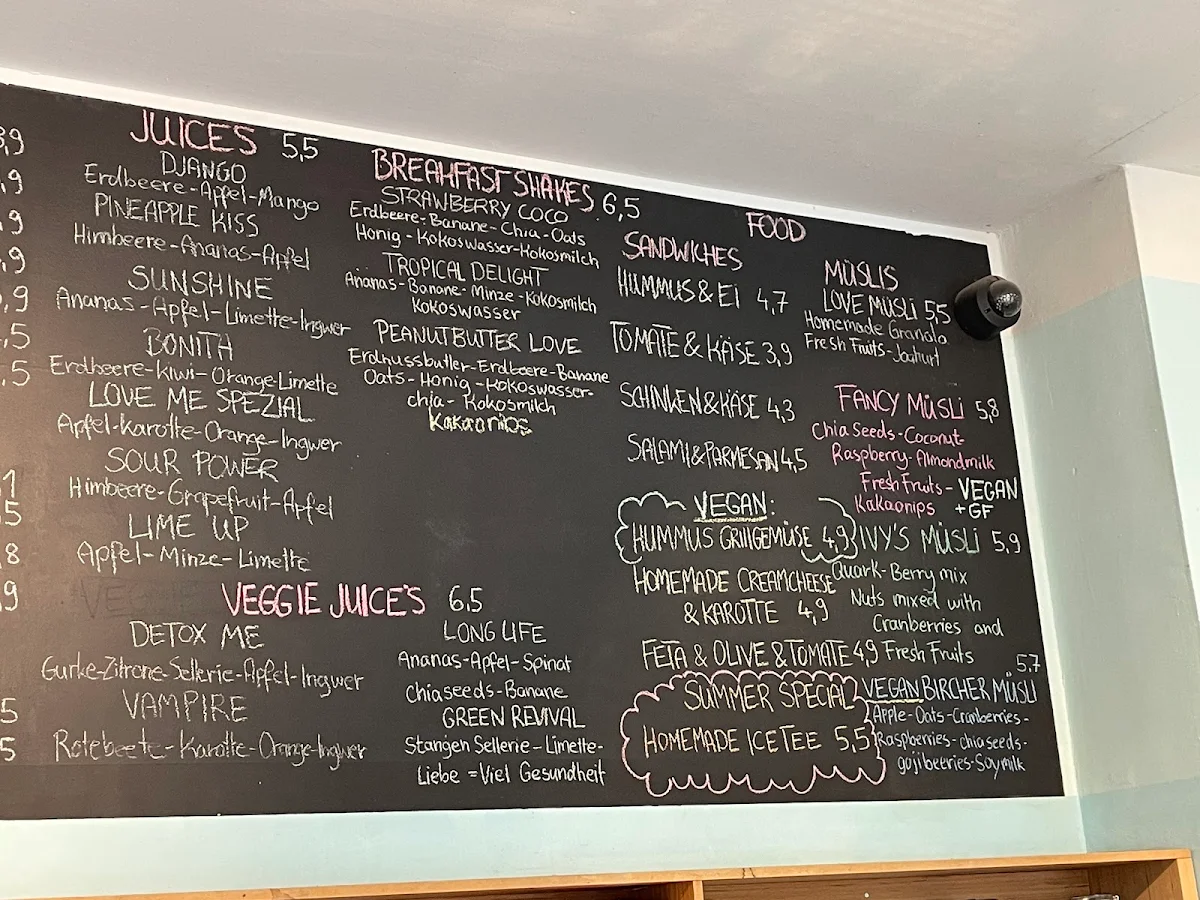 3,9
,9
,9
,9
,9
,5
,5
1
5
8
9
5
5
JUICES 5,5
DJANGO
Erdbeere-Apfel-Mango
PINEAPPLE KISS
Himbeere-Ananas-Apfel
SUNSHINE
Ananas-Apfel-Limette-Ingwer
BONITA
Erdbeere-Kiwi-Orange-Limette
LOVE ME SPEZIAL
Apfel-Karotte-Orange-Ingwer
SOUR POWER
Himbeere-Grapefruit-Apfel
LIME UP
Apfel-Minze-Limette
VEGGIE JUICE'S 6,5
DETOX ME
Gurke-Zitrone-Sellerie-Apfel-Ingwer
VAMPIRE
Rotebeete-Karotte-Orange-Ingwer
LONG LIFE
Ananas-Apfel-Spinat
Chiaseeds-Banane
GREEN REVIVAL
Stangen Sellerie-Limette-
Liebe =Viel Gesundheit
BREAKFAST SHAKES 6,5
STRAWBERRY COCO
Erdbeere-Banane-Chia-Oats
Honig-Kokoswasser-Kokosmilch
TROPICAL DELIGHT
Ananas-Banane-Minze-Kokosmilch
Kokoswasser
PEANUTBUTTER LOVE
Erdnussbutter-Erdbeere-Banane
Oats-Honig-Kokoswasser-
chia-Kokosmilch
Kakaonips
FOOD
SANDWICHES
HUMMUS & EI 4,7
TOMATE & KÄSE 3,9
SCHINKEN & KÄSE 4,3
SALAMI & PARMESAN 4,5
VEGAN:
HUMMUS GRILLGEMÜSE 4,9
HOMEMADE CREAMCHEESE
& KAROTTE 4,9
FETA & OLIVE & TOMATE 4,9
SUMMER SPECIAL
HOMEMADE ICETEE 5,5
MÜSLIS
LOVE MÜSLI 5,5
Homemade Granola
Fresh Fruits-Joghurt
FANCY MÜSLI 5,8
Chia Seeds-Coconut-
Raspberry-Almondmilk
Fresh Fruits-VEGAN
Kakaonips +GF
IVY'S MÜSLI 5,9
Quark-Berry mix
Nuts mixed with
Cranberries and
Fresh Fruits
5,7
VEGAN BIRCHER MÜSLI
Apple-Oats-Cranberries-
Raspberries-chiaseeds-
gojibeeries-Soymilk